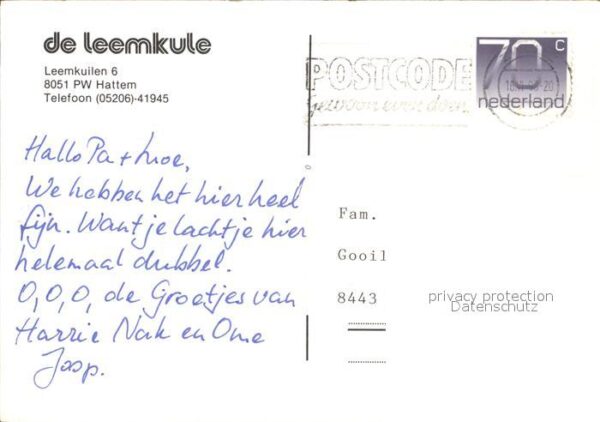 de leemkule
Leemkuilen 6
8051 PW Hattem
Telefoon (05206)-41945
Hallo Pa + Moe,
We hebben het hier heel
fijn. Want je lacht je hier
helemaal dubbel.
O, O, O, de Groetjes van
Harrie Nak en Ome
Joop.
POSTCODE
gewoon even doen
70 c
nederland
Fam.
Gooil
8443
privacy protection
Datenschutz